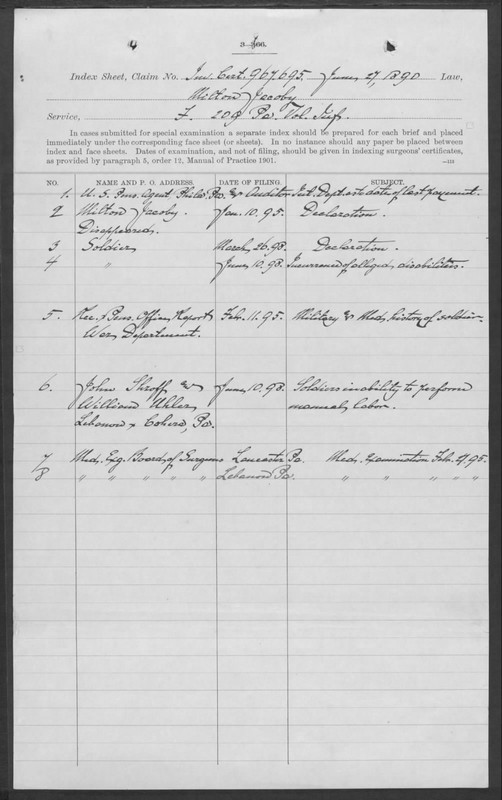 3-166.
Index Sheet, Claim No. Inv. Cert. 967.695. June 27, 1890 Law,
Milton Jacoby
Service, F. 209 Pa. Vol. Inf.
In cases submitted for special examination a separate index should be prepared for each brief and placed
immediately under the corresponding face sheet (or sheets). In no instance should any paper be placed between
index and face sheets. Dates of examination, and not of filing, should be given in indexing surgeons' certificates,
as provided by paragraph 5, order 12, Manual of Practice 1901.
NO. NAME AND P. O. ADDRESS. DATE OF FILING. SUBJECT.
1. U. S. Pens. Agent Phila. Pa. & Auditor Int. Dept. as to date of last payment.
2 Milton Jacoby. Jan. 10. 95. Declaration.
Disappeared.
3 Soldier March 26. 98. Declaration.
4 " June 10. 98. Incurrence of alleged disabilities.
5. Rec. & Pens. Office Report Feb. 11. 95. Military & Med. history of soldier.
War Department.
6. John Shroff & June 10. 98. Soldiers inability to perform
William Uhler manual labor.
Lebanon & Pa.
7 Med. Exg. Board of Surgeons Lancaster Pa. Med. Examination Feb. 27, 95.
8 " " " " " Lebanon Pa. " " " " "